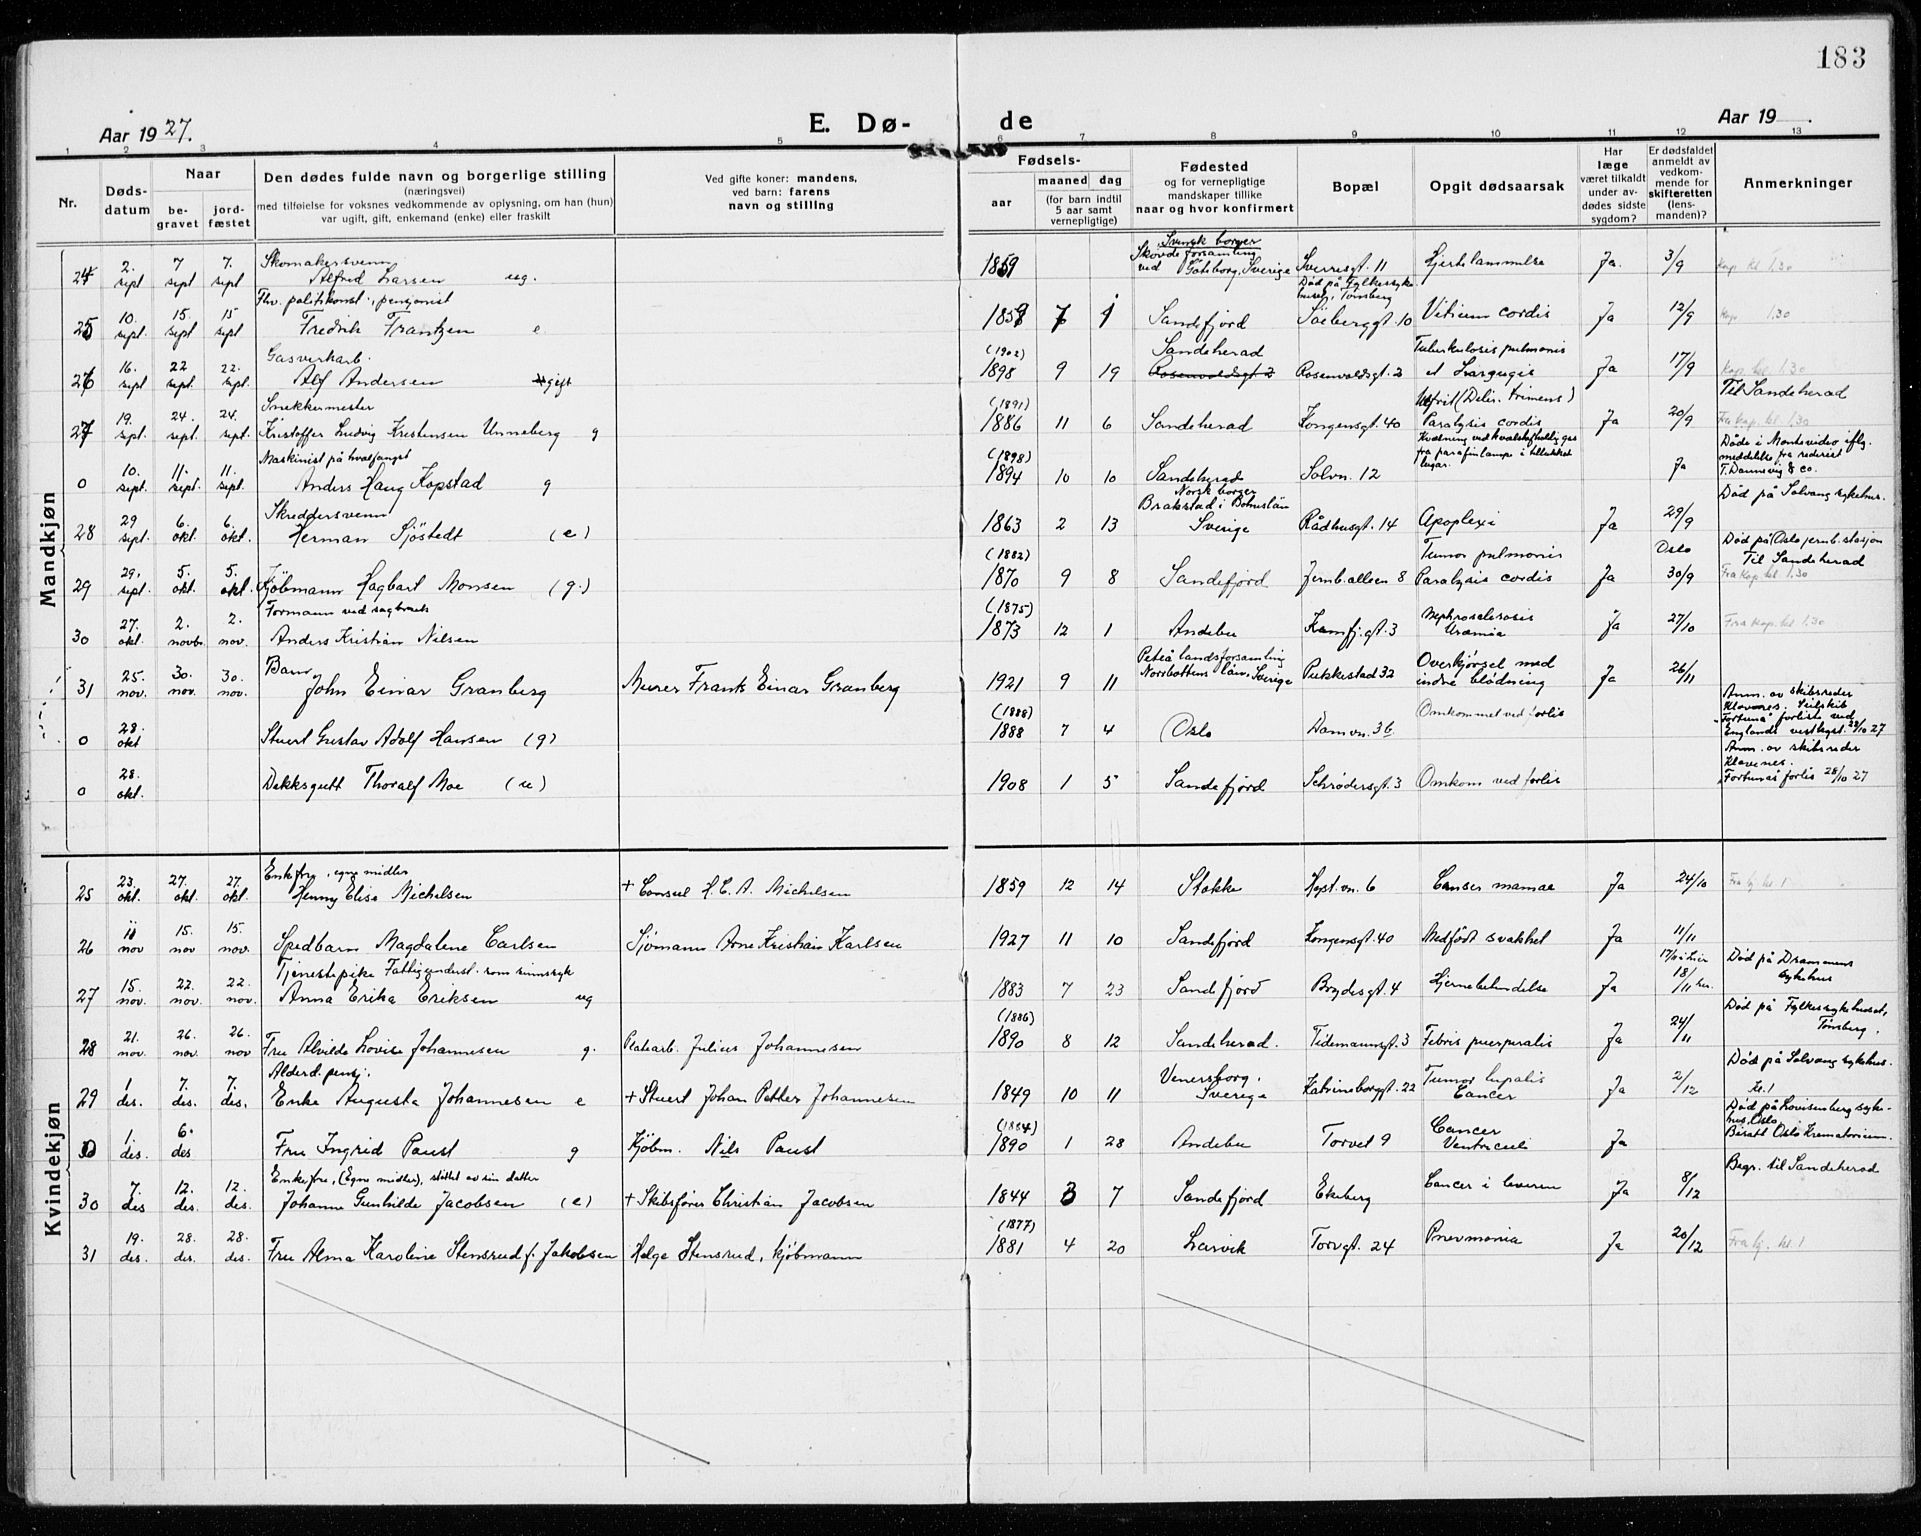 183
Aar 1927.
E. Dø- de
Aar 19
1 2 3 4 5 6 7 8 9 10 11 12 13
Nr.
Døds-
datum
Naar
be-
gravet
jord-
fæstet
Den dødes fulde navn og borgerlige stilling
(næringsvei)
med tilføielse for voksnes vedkommende av oplysning, om han (hun)
var ugift, gift, enkemand (enke) eller fraskilt
Ved gifte koner: mandens,
ved barn: farens
navn og stilling
Fødsels-
aar
maaned dag
(for barn indtil
5 aar samt
vernepligtige)
Fødested
og for vernepligtige
mandskaper tillike
naar og hvor konfirmert
Bopæl
Opgit dødsaarsak
Har
læge
været tilkaldt
under av-
dødes sidste
sygdom?
Er dødsfaldet
anmeldt av
vedkom-
mende for
skifteretten
(lens-
manden)?
Anmerkninger
Mandkjøn
24 2. sept 7 sept 7. sept Skomakersvenn
Alfred Larsen ug. 1859 Svensk borger
Skövde forsamling
ved Göteborg, Sverige Sverresgt. 11 Hjertelammelse Ja. 3/9 Kap. kl. 1.30
25 10. sept. 15. sept 15 sept Fhv. politikonst., pensjonist
Fredrik Frantzen e 1859 7 1 Sandefjord Død på Fylkessyke
huset, Tønsberg
Söeberggt. 10 Vitium cordis Ja 12/9 Kap. 1.30
26 16. sept 22 sept 22. sept. Gasverkarb.
Alf Andersen gift (1902)
1898 9 19 Sandeherad
Rosenvoldsgt 2 Rosenvoldsgt. 2 Tuberkulosis pulmonis
et Laryngis Ja 17/9 Kap. kl. 1.30
Til Sandeherad
27 19. sept. 24. sept. 24. sept. Snekkermester
Kristoffer Ludvig Kristensen Unneberg g (1891)
1886 11 6 Sandeherad Kongensgt. 40 Nefrit (Delir. trimens)
Paralysis cordis Ja 20/9 Fra Kap. kl. 1.30
0 10. sept. 11. sept. 11. sept. Maskinist på hvalfangst
Anders Haug Kopstad g (1898)
1894 10 10 Sandeherad Solvn. 12 Kvælning ved kvalstofholdig gas
fra parafinlampe i tillukket
lugar. Ja Døde i Montevideo iflg.
meddelelse fra rederiet
T. Dannevig & Co.
28 29 sept. 6. okt. 6. okt. Skreddersvenn
Herman Sjöstedt (e) 1863 2 13 Norsk borger
Brakstad i Bohuslän
Sverige Rådhusgt. 14 Apoplexi Ja 29/9 Død på Solvang sykehus.
29 29. sept. 5. okt 5. okt. Kjöbmann Hagbart Monsen (g.) (1882)
1870 9 8 Sandefjord Jernb. alleen 8 Tumor pulmonis
Paralysis cordis Ja Oslo
30/9 Død på Oslo jernb. stasjon
Til Sandeherad
Fra Kap. kl. 1.30
30 27. okt. 2. novbr. 2. nov. Formann ved sagbruk
Anders Kristian Nilsen (1875)
1873 12 1 Andebu Kamfj. gt. 3 Nephrosclerosis
Uræmia Ja 27/10 Fra Kap. kl. 1.30
31 25 nov. 30. nov. 30. nov. Barn
John Einar Granberg Murer Frants Einar Granberg 1921 9 11 Piteå landsforsamling
Norrbottens län, Sverige Pukkestad 32 Overkjørsel med
indre blødning Ja 26/11
0 28. okt Stuert Gustav Adolf Hansen (g) (1888)
1888 7 4 Oslo Damvn. 36 Omkommet ved forlis Anm. av skibsreder
Klavenes. Seilskib
"Fortuna" forliste ved
Englands vestkyst. 28/10 27
0 28. okt. Dekksgutt Thoralf Moe (u) 1908 1 5 Sandefjord Schrödersgt. 3 Omkom ved forlis Anm. av skibsreder
Klavenes.
"Fortunas" forlis 28/10 27
Kvindekjøn
25 23. okt. 27. okt. 27. okt. Enkefru, egne midler
Henny Elise Michelsen + Consul H. C. A. Michelsen 1859 12 14 Stokke Høst. vn. 6 Canser mamae Ja 24/10 Fra kj. kl. 1
26 11 nov 15. nov 15. nov. Spedbarn Magdalene Carlsen Sjømann Arne Kristian Karlsen 1927 11 10 Sandefjord Kongensgt. 40 Medfödt svakhet Ja 11/11
27 15. nov. 22. nov. 22. nov. Tjenestepike Fattigunderst. som sinnsyk
Anna Erika Eriksen ug 1883 7 23 Sandefjord Brydesgt. 4 Hjernebetendelse Ja 18/11 her. Död på Drammens
sykehus
28 21. nov. 26. nov. 26. nov Fru Alvilde Lovise Johannesen g. Platearb. Julius Johannesen (1886)
1890 8 12 Sandeherad. Tidemannsgt. 3 Febris puerperalis Ja 24/11 Død på Fylkessykehuset,
Tønsberg.
29 1 des. 7. des. 7. des. Alderd. pensj.
Enke Augusta Johannesen e + Stuert Johan Petter Johannesen 1849 10 11 Venersborg.
Sverige Katrineborggt. 22 Tumor hepatis
Cancer Ja 2/12 Død på Solvang sykehus.
Kl. 1
0 1. des. 6. des Fru Ingrid Paust g Kjöbm. Nils Paust (1884)
1890 1 28 Andebu Torvet 9 Cancer
Ventriculi Ja Död på Lovisenberg syke-
hus, Oslo
Bisatt Oslo Krematorium.
30 7. des 12. des. 12. des. Enkefru, (Egne midler), støttet av sin datter
Johanne Gunhilde Jacobsen (e) + Skibsfører Christian Jacobsen 1844 3 7 Sandefjord Ekeberg Cancer i leveren Ja 8/12 Begr. til Sandeherad
31 19. des. 28. des. 28. des. Fru Alma Karoline Stensrud f. Jakobsen Helge Stensrud, kjöbmann (1877)
1881 4 20 Larvik Torvgt. 24 Pnevmonia Ja 20/12 Fra kj. kl. 1